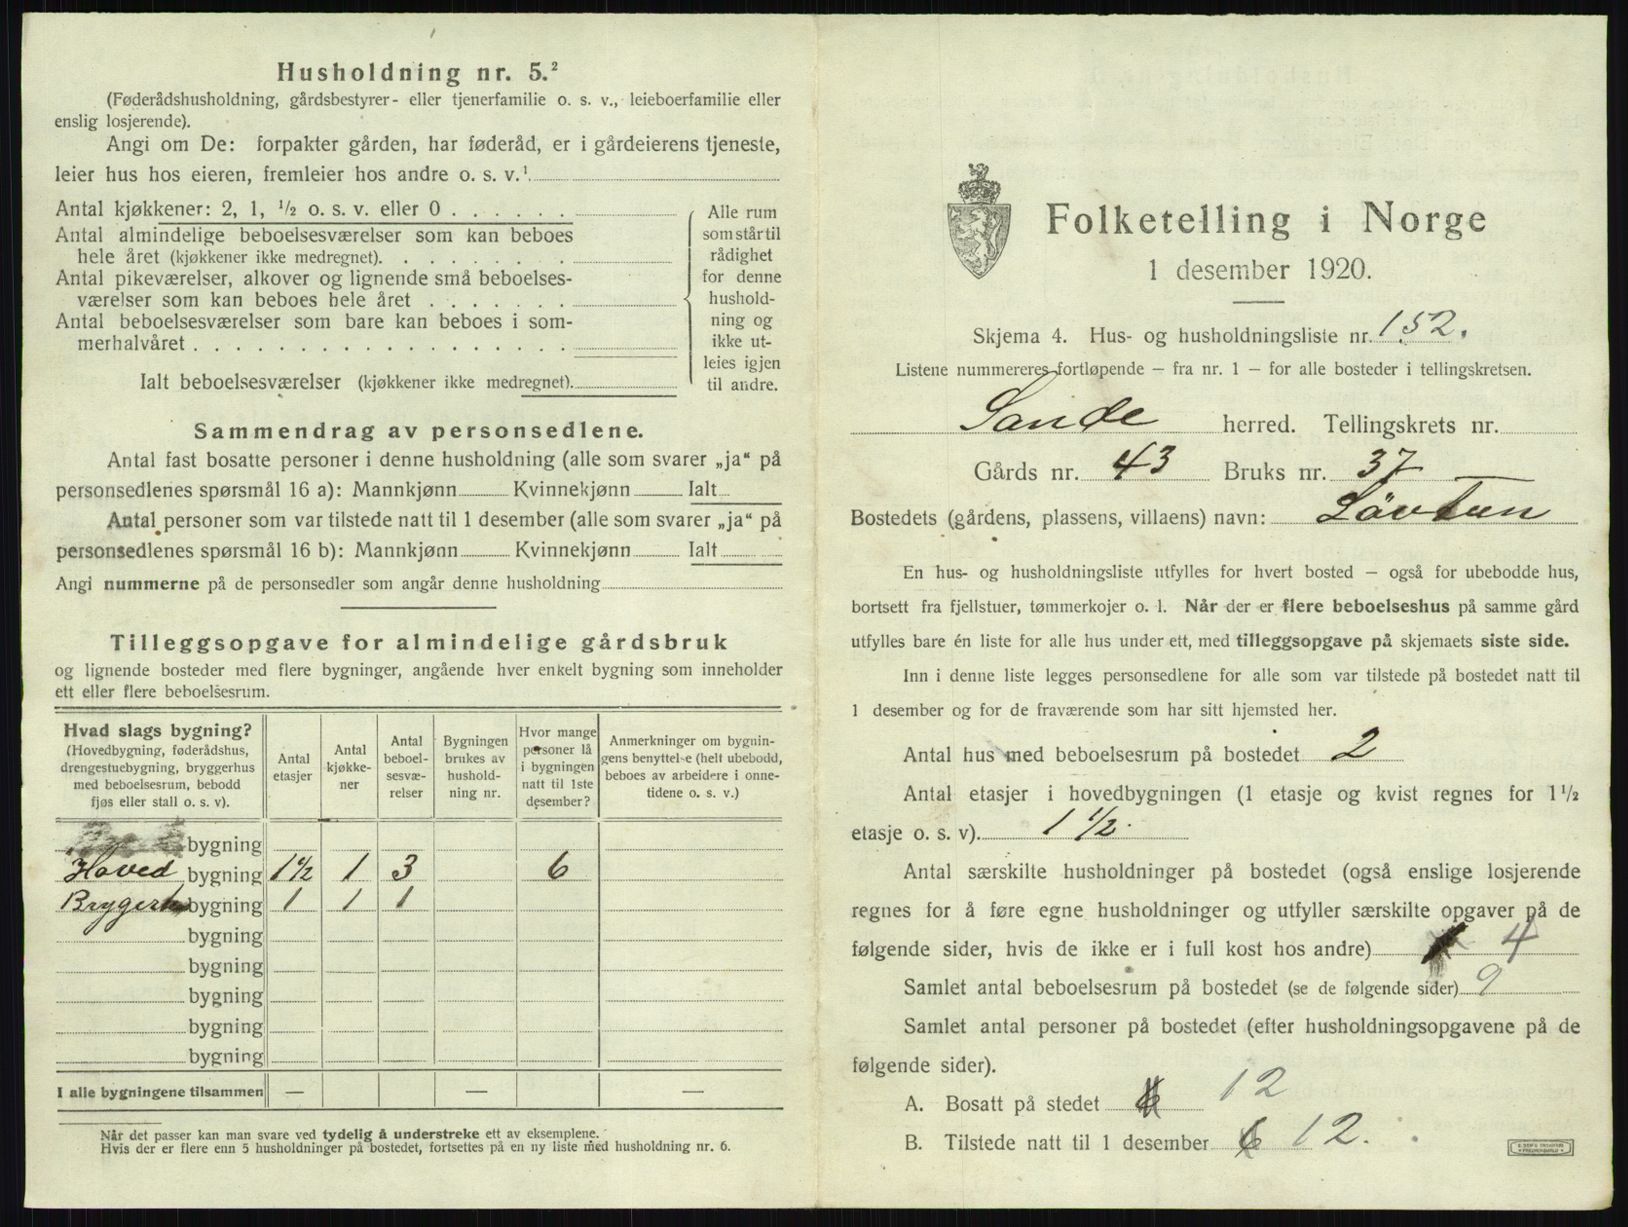 Husholdning nr. 5.²
(Føderådshusholdning, gårdsbestyrer- eller tjenerfamilie o. s. v., leieboerfamilie eller
enslig losjerende).
Angi om De: forpakter gården, har føderåd, er i gårdeierens tjeneste,
leier hus hos eieren, fremleier hos andre o. s. v.¹
Antal kjøkkener: 2, 1, ½ o. s. v. eller 0
Antal almindelige beboelsesværelser som kan beboes
hele året (kjøkkener ikke medregnet).
Antal pikeværelser, alkover og lignende små beboelses-
værelser som kan beboes hele året
Antal beboelsesværelser som bare kan beboes i som-
merhalvåret
Ialt beboelsesværelser (kjøkkener ikke medregnet).
Alle rum
som står til
rådighet
for denne
hushold-
ning og
ikke ut-
leies igjen
til andre.
Sammendrag av personsedlene.
Antal fast bosatte personer i denne husholdning (alle som svarer „ja“ på
personsedlenes spørsmål 16 a): Mannkjønn Kvinnekjønn Ialt
Antal personer som var tilstede natt til 1 desember (alle som svarer „ja“ på
personsedlenes spørsmål 16 b): Mannkjønn Kvinnekjønn Ialt
Angi nummerne på de personsedler som angår denne husholdning
Tilleggsopgave for almindelige gårdsbruk
og lignende bosteder med flere bygninger, angående hver enkelt bygning som inneholder
ett eller flere beboelsesrum.
Hvad slags bygning?
(Hovedbygning, føderådshus,
drengestuebygning, bryggerhus
med beboelsesrum, bebodd
fjøs eller stall o. s. v).
Antal
etasjer
Antal
kjøkke-
ner
Antal
beboel-
sesvæ-
relser
Bygningen
brukes av
hushold-
ning nr.
Hvor mange
personer lå
i bygningen
natt til 1ste
desember?
Anmerkninger om bygnin-
gens benyttelse (helt ubebodd,
beboes av arbeidere i onne-
tidene o. s. v.)
bygning
Hoved bygning 1½ 1 3 6
Brygerh bygning 1 1 1
bygning
bygning
bygning
bygning
bygning
I alle bygningene tilsammen — — —
Når det passer kan man svare ved tydelig å understreke ett av eksemplene.
Hvis der er flere enn 5 husholdninger på bostedet, fortsettes på en ny liste med husholdning nr. 6.
Folketelling i Norge
1 desember 1920.
Skjema 4. Hus- og husholdningsliste nr. 152.
Listene nummereres fortløpende — fra nr. 1 — for alle bosteder i tellingskretsen.
Sande herred. Tellingskrets nr.
Gårds nr. 43 Bruks nr. 37
Bostedets (gårdens, plassens, villaens) navn: Løvtun
En hus- og husholdningsliste utfylles for hvert bosted — også for ubebodde hus,
bortsett fra fjellstuer, tømmerkojer o. l. Når der er flere beboelseshus på samme gård
utfylles bare én liste for alle hus under ett, med tilleggsopgave på skjemaets siste side.
Inn i denne liste legges personsedlene for alle som var tilstede på bostedet natt til
1 desember og for de fraværende som har sitt hjemsted her.
Antal hus med beboelsesrum på bostedet 2
Antal etasjer i hovedbygningen (1 etasje og kvist regnes for 1½
etasje o. s. v). 1½.
Antal særskilte husholdninger på bostedet (også enslige losjerende
regnes for å føre egne husholdninger og utfyller særskilte opgaver på de
følgende sider, hvis de ikke er i full kost hos andre) 4
Samlet antal beboelsesrum på bostedet (se de følgende sider) 9
Samlet antal personer på bostedet (efter husholdningsopgavene på de
følgende sider).
A. Bosatt på stedet 12
B. Tilstede natt til 1 desember 6 12.